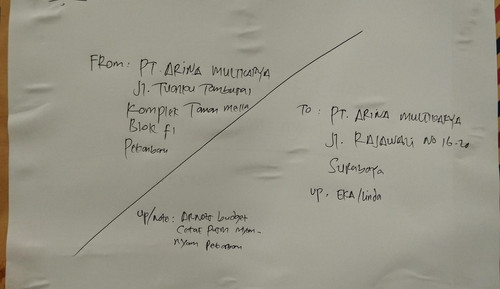 From: PT. ARINA MULTIKARYA
Jl. Tuanku Tambusai
Komplek Taman Mella
Blok F1
Pekanbaru
To: PT. ARINA MULTIKARYA
Jl. RAJAWALI No 16-20
Surabaya
up. EKA/Linda
up/note: budget
Nyam Pekanbaru